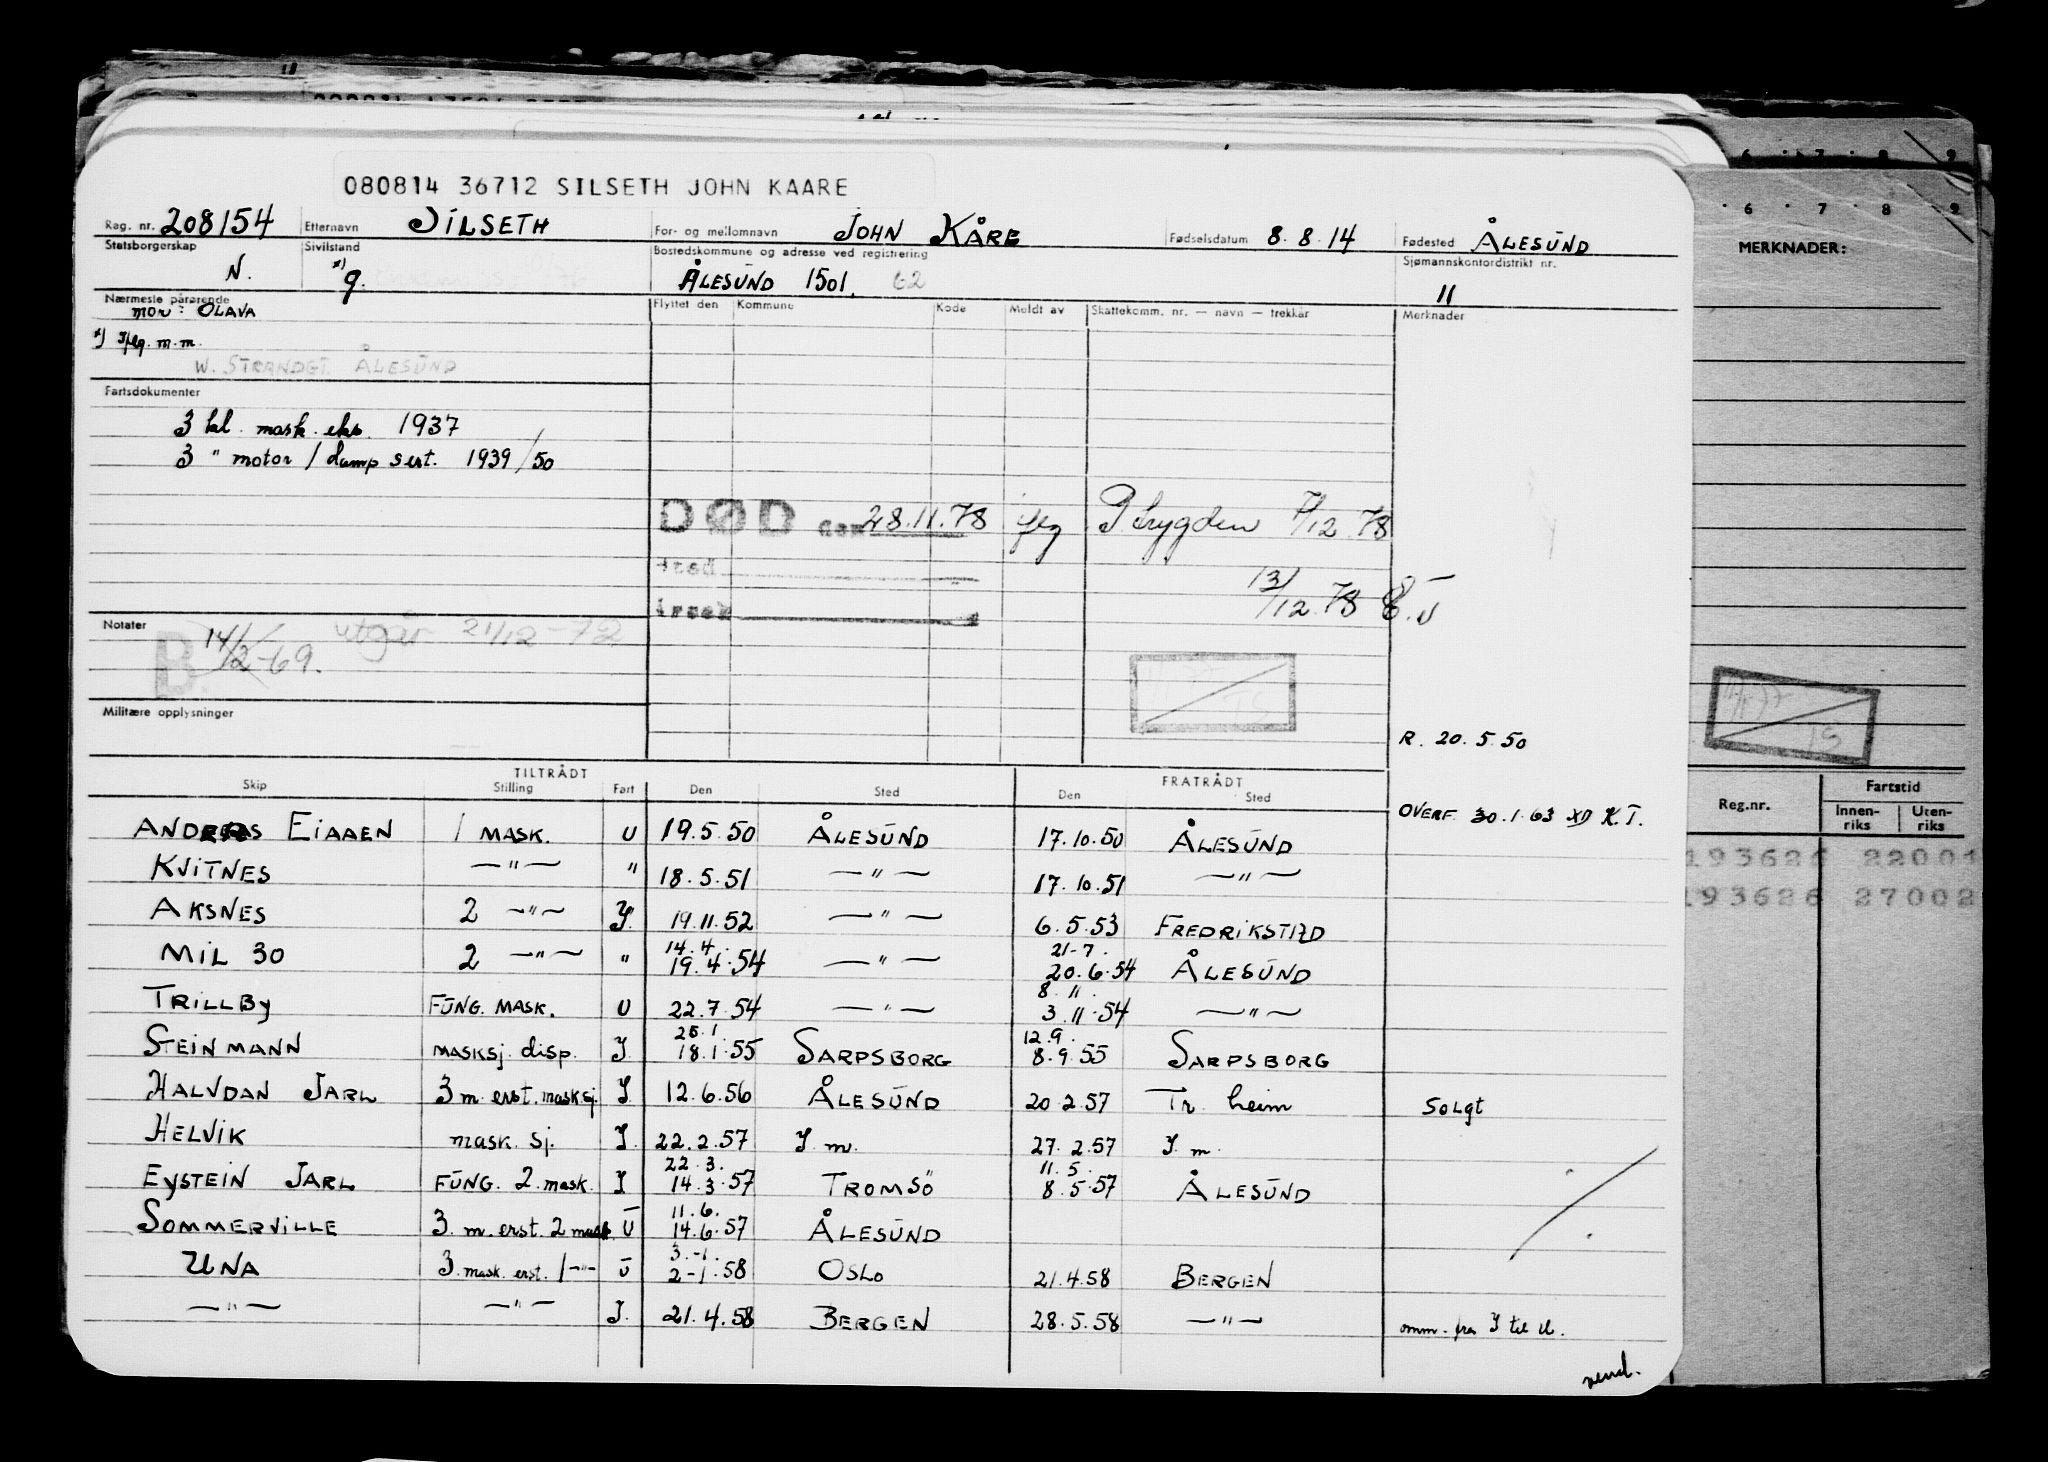 080814 36712 SILSETH JOHN KAARE
Reg. nr. 208154 Etternavn SILSETH For- og mellomnavn JOHN KÅRE Fødselsdatum 8.8.14 Fødested ÅLESUND
Statsborgerskap N. Sivilstand x) g. Bostedskommune og adresse ved registrering ÅLESUND 1501. 62 Sjømannskontordistrikt nr. 11
Nærmeste pårørende mor: OLAVA
x) Iflg. m.m.
W. STRANDGT. ÅLESUND
Flyttet den Kommune Kode Meldt av Skattekomm. nr. — navn — trekkår Merknader
Fartsdokumenter
3 kl. mask. eks. 1937
3 " motor / damp sert. 1939/50
DØD den 28.11.78 iflg P.trygden 7/12 78
sted
årsak
13/12.78
Notater
B. 14/2-69. utgår 21/12-72
Militære opplysninger
TS
R. 20.5.50
OVERF. 30.1.63 K.T.
TILTRÅDT FRATRÅDT
Skip Stilling Fart Den Sted Den Sted
ANDREAS EIAAEN 1 MASK. U 19.5.50 ÅLESUND 17.10.50 ÅLESUND
KVITNES —"— " 18.5.51 —"— 17.10.51 —"—
AKSNES 2 —"— I. 19.11.52 —"— 6.5.53 FREDRIKSTAD
MIL 30 2 —"— " 14.4. 19.4.54 —"— 21-7. 20.6.54 ÅLESUND
TRILLBY FUNG. MASK. U 22.7.54 —"— 8.11. 3.11.54 —"—
STEINMANN MASKSJ. disp. I. 25.1. 18.1.55 SARPSBORG 12.9. 8.9.55 SARPSBORG
HALVDAN JARL 3 m. erst. masksj. I. 12.6.56 ÅLESUND 20.2.57 Tr.heim SOLGT
HELVIK mask. sj. I. 22.2.57 I. m. 27.2.57 I. m.
EYSTEIN JARL FUNG. 2. mask. I 22.3. 14.3.57 TROMSÖ 11.5. 8.5.57 ÅLESUND
SOMMERVILLE 3. m. erst. 2 mask. U 11.6. 14.6.57 ÅLESUND
UNA 3. mask. erst. 1 —"— U 3.-1. 2-1.58 OSLO 21.4.58 BERGEN
—"— —"— I. 21.4.58 BERGEN 28.5.58 —"— omm. fra I til U.
vend.
6 7 8 9
6 7 8 9
MERKNADER:
TS
Reg.nr. Fartstid
Innenriks Utenriks
193626 22001
193626 27002